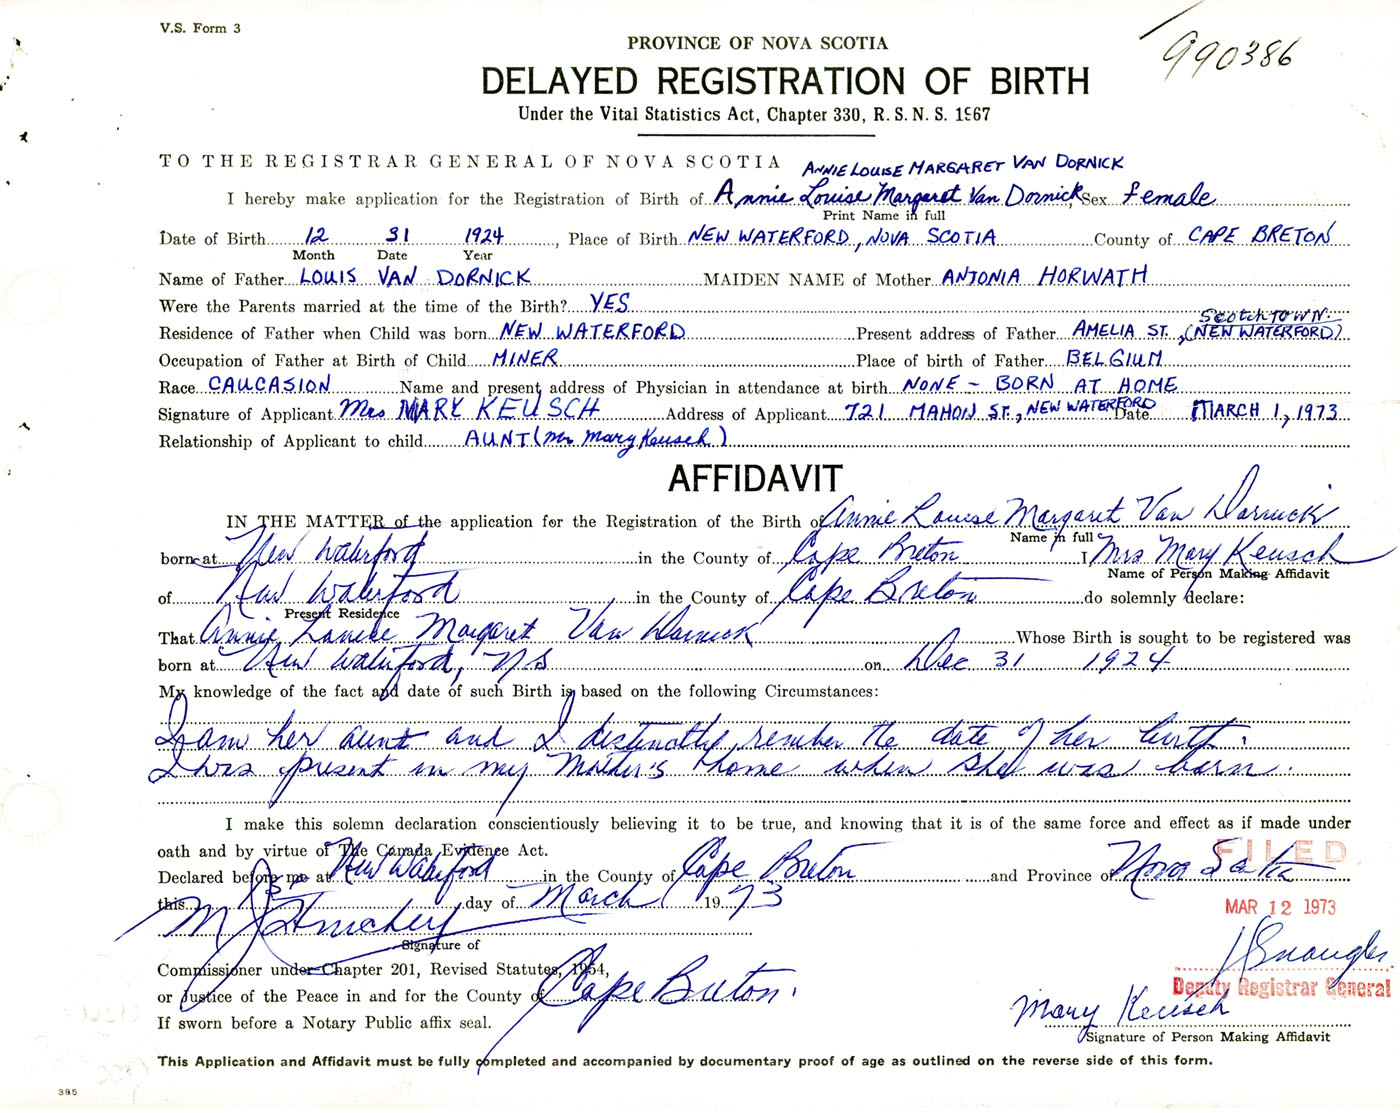 V.S. Form 3
990386
PROVINCE OF NOVA SCOTIA
DELAYED REGISTRATION OF BIRTH
Under the Vital Statistics Act, Chapter 330, R. S. N. S. 1967
TO THE REGISTRAR GENERAL OF NOVA SCOTIA ANNIE LOUISE MARGARET VAN DORNICK
I hereby make application for the Registration of Birth of Annie Louise Margaret Van Dornick, Sex female
Print Name in full
Date of Birth 12 31 1924, Place of Birth NEW WATERFORD, NOVA SCOTIA County of CAPE BRETON
Month Date Year
Name of Father LOUIS VAN DORNICK MAIDEN NAME of Mother ANTONIA HORWATH
Were the Parents married at the time of the Birth? YES
SCOTCHTOWN.
Residence of Father when Child was born NEW WATERFORD Present address of Father AMELIA ST., (NEW WATERFORD)
Occupation of Father at Birth of Child MINER Place of birth of Father BELGIUM
Race CAUCASION Name and present address of Physician in attendance at birth NONE - BORN AT HOME
Signature of Applicant Mrs MARY KEUSCH Address of Applicant 721 MAHON ST., NEW WATERFORD Date MARCH 1, 1973
Relationship of Applicant to child AUNT (Mrs Mary Keusch)
AFFIDAVIT
IN THE MATTER of the application for the Registration of the Birth of Annie Louise Margaret Van Dornick
Name in full
born at New Waterford in the County of Cape Breton I, Mrs Mary Keusch
Name of Person Making Affidavit
of New Waterford in the County of Cape Breton do solemnly declare:
Present Residence
That Annie Louise Margaret Van Dornick Whose Birth is sought to be registered was
born at New Waterford, NS on Dec 31 1924
My knowledge of the fact and date of such Birth is based on the following Circumstances:
I am her aunt and I distinctly rember the date of her birth.
I was present in my Mother's home when she was born.
I make this solemn declaration conscientiously believing it to be true, and knowing that it is of the same force and effect as if made under
oath and by virtue of The Canada Evidence Act.
FILED
Declared before me at New Waterford in the County of Cape Breton and Province of Nova Scotia
this day of March 1973
MAR 12 1973
Signature of
Commissioner under Chapter 201, Revised Statutes, 1954,
Deputy Registrar General
or Justice of the Peace in and for the County of Cape Breton.
Mary Keusch
If sworn before a Notary Public affix seal.
Signature of Person Making Affidavit
This Application and Affidavit must be fully completed and accompanied by documentary proof of age as outlined on the reverse side of this form.
385